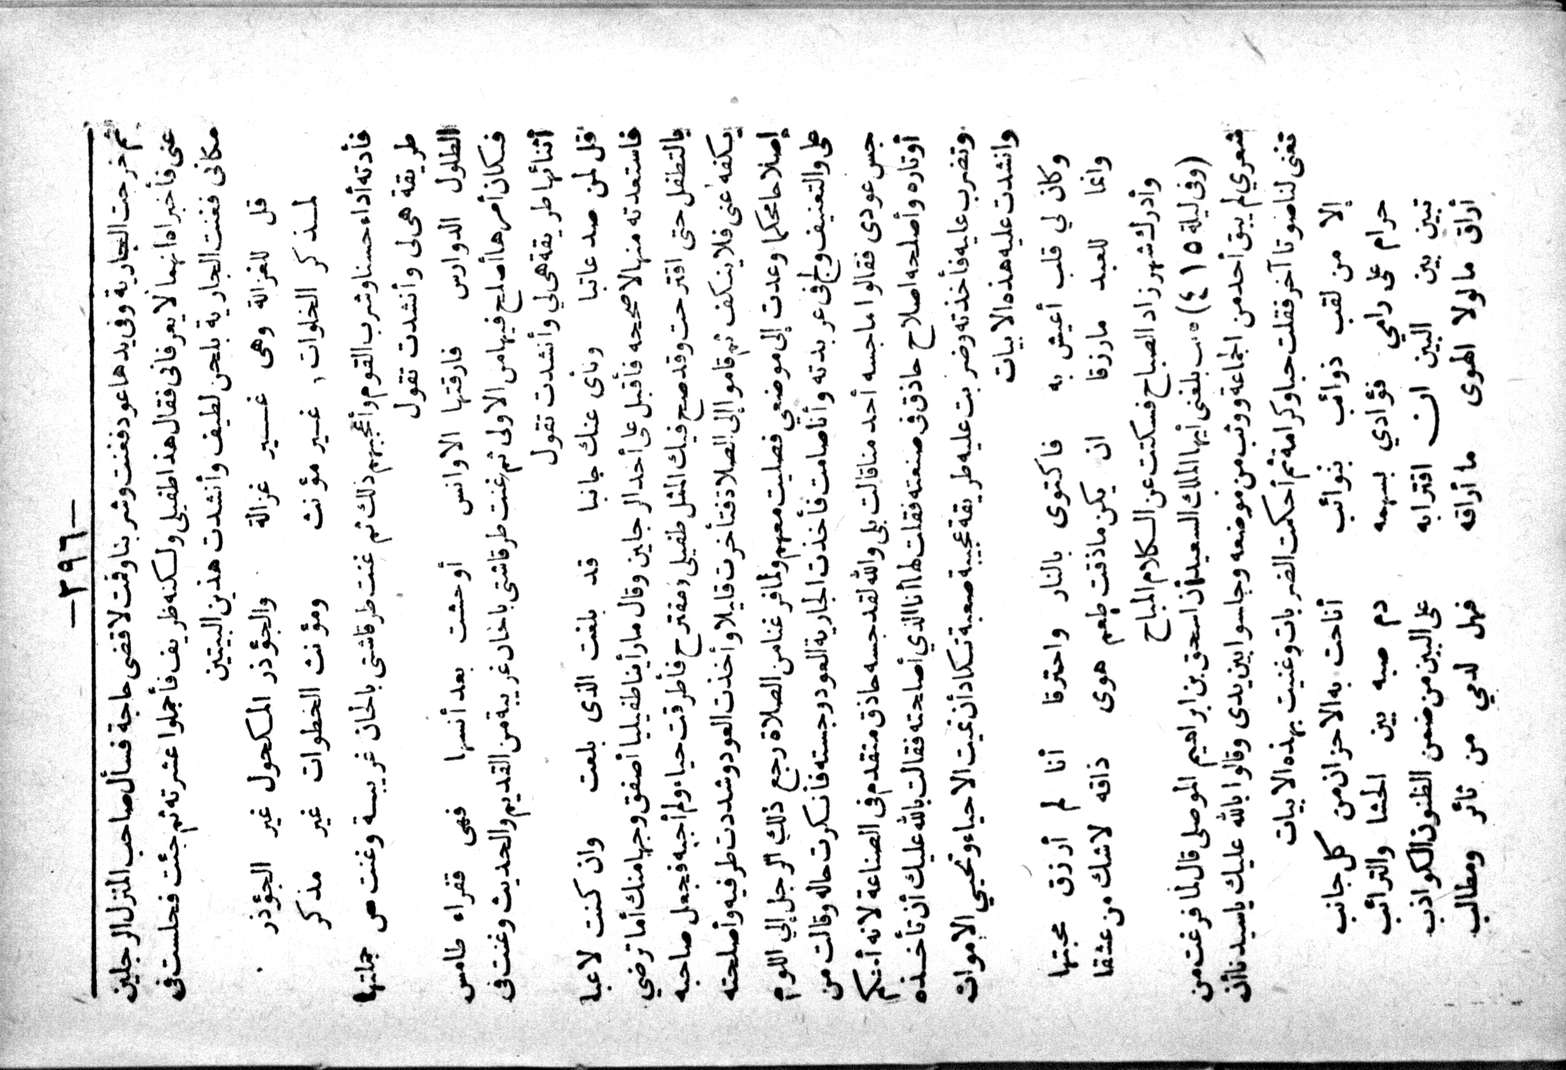 — ٢٩٦ —
ثم خرجت الجارية وفي يدها عود فغنت وشربنا وقمت لاقضي حاجة فسأل صاحب المنزل الرجلين
عنى فأخبراه انهما لا يعرفانى فقال هذا طفيلى ولكنه ظريف فأجملوا عشرته ثم جئت فجلست فى
مكانى فغنت الجارية بلحن لطيف وأنشدت هذين البيتين
قل للغزالة وهى غير غزالة والجؤذر المكحول غير الجؤذر
لمذكر الخلوات غير مؤنث ومؤنث الخطوات غير مذكر
فأدته أداء حسنا وشرب القوم وأعجبهم ذلك ثم غنت طرقا شتى بالحان غريبة وغنت من جملتها
طريقة هى لى وأنشدت تقول
الطلول الدوارس فارقتها الاوانس أوحشت بعد أنسها فهى قفراء طامس
فكان أمرها أصلح فيها من الاولى ثم غنت طرقا شتى بالحان غريبة من القديم والحديث وغنت فى
أثنائها طريقة هى لي وأنشدت تقول
قل لمن صد عاتبا ونأى عنك جانبا قد بلغت الذى بلغت وان كنت لاعبا
فاستعدته منها لاصححه فأقبل على أحد الرجلين وقال ما رأينا طفيليا أصفق وجها منك أما ترضي
بالتطفل حتى اقترحت وقد صح فيك المثل طفيلى ومقترح فأطرقت حياء ولم أجبه فجعل صاحبه
يكفه عنى فلا ينكف ثم قاموا إلى الصلاة فتأخرت قليلا وأخذت العود وشددت طرفيه وأصلحته
إصلاحا محكما وعدت إلى موضعي فصليت معهم ولما فرغنا من الصلاة رجع ذلك الرجل إلي اللوم
على والتعنيف ولج فى عربدته وأنا صامت فأخذت الجارية العود وجسته فأنكرت حاله وقالت من
جس عودى فقالوا ما جسه أحد منا قالت بلى والله لقد جسه حاذق متقدم فى الصناعة لانه أحكم
أوتاره وأصلحه اصلاح حاذق فى صنعته فقلت لها أنا الذي أصلحته فقالت بالله عليك أن تأخذه
وتضرب عليه فأخذته وضربت عليه طريقة عجيبة صعبة تكاد أن تميت الاحياء وتحيي الاموات
وانشدت عليه هذه الابيات
وكان لي قلب أعيش به فاكتوى بالنار واحترقا أنا لم أرزق محبتها
وانما للعبد مارزقا ان يكن ماذقت طعم هوى ذاقه لاشك من عشقا
وأدرك شهرزاد الصباح فسكتت عن الكلام المباح
(وفى ليلة ٤١٥) قالت بلغنى أيها الملك السعيد أن اسحق بن ابراهيم الموصلى قال لما فرغت من
شعري لم يبق أحد من الجماعة ووثب من موضعه وجلسوا بين يدى وقالوا بالله عليك ياسيدنا أن
تغنى لنا صوتا آخر فقلت حبا وكرامة ثم أحكمت الضربات وغنيت بهذه الابيات
إلا من لقب ذوائب بنوائب أناخت به الاحزان من كل جانب
حرام على رامي فؤادي بسهمه دم صبه بين الحشا والترائب
تبين بين البين ان اقترابه على البين من ضمن الظنون الكواذب
أراق مالولا الهوى ما أراقه فهل لدمي من ثائر ومطالب